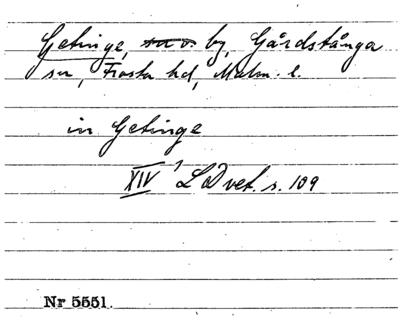 Getinge, by, Gårdstånga
sn, Frosta hd, Malm. l.
in Getinge
XIV¹ LD vet. s. 109
Nr 5551.